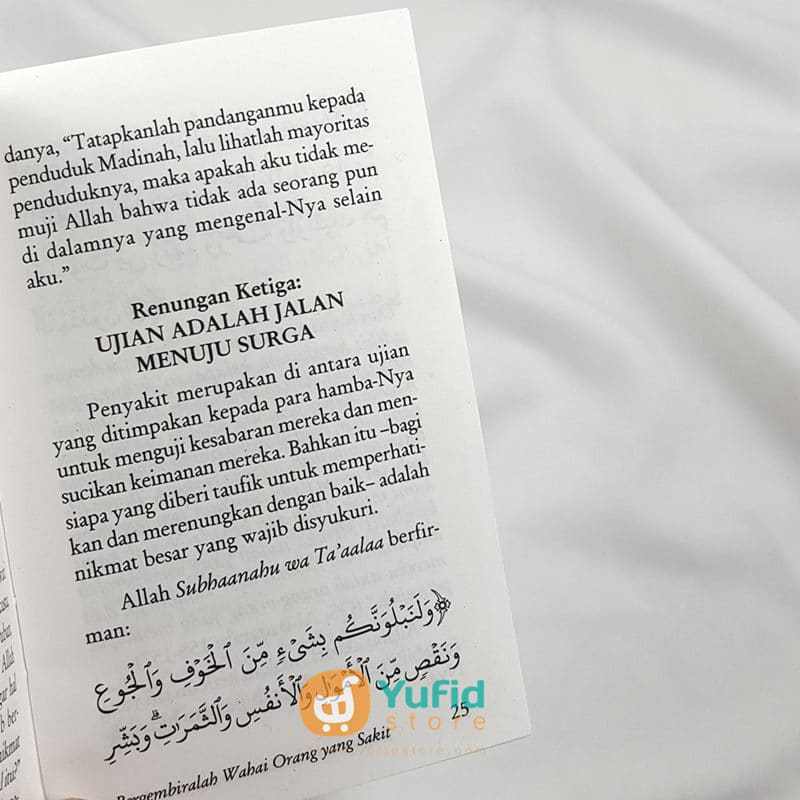 danya, “Tatapkanlah pandanganmu kepada
penduduk Madinah, lalu lihatlah mayoritas
penduduknya, maka apakah aku tidak me-
muji Allah bahwa tidak ada seorang pun
di dalamnya yang mengenal-Nya selain
aku.”
Renungan Ketiga:
UJIAN ADALAH JALAN
MENUJU SURGA
Penyakit merupakan di antara ujian
yang ditimpakan kepada para hamba-Nya
untuk menguji kesabaran mereka dan men-
sucikan keimanan mereka. Bahkan itu –bagi
siapa yang diberi taufik untuk memperhati-
kan dan merenungkan dengan baik– adalah
nikmat besar yang wajib disyukuri.
Allah Subhaanahu wa Ta’aalaa berfir-
man:
﴿وَلَنَبْلُوَنَّكُم بِشَىْءٍ مِّنَ ٱلْخَوْفِ وَٱلْجُوعِ
وَنَقْصٍ مِّنَ ٱلْأَمْوَٰلِ وَٱلْأَنفُسِ وَٱلثَّمَرَٰتِ ۗ وَبَشِّرِ
Bergembiralah Wahai Orang yang Sakit
25
Yufid
store